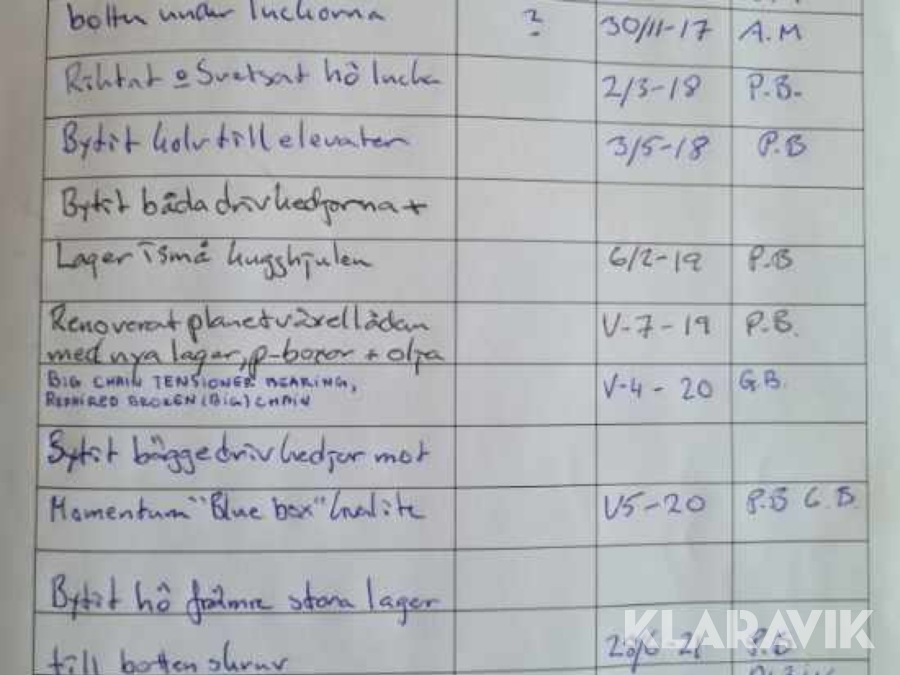 botten under luckorna ? 30/11-17 A.M
Riktat o Svetsat hö lucka 2/3-18 P.B.
Bytit till elevatorn 3/5-18 P.B
Bytit båda drivkedjorna +
Lager i små kugghjulen 6/2-19 P.B
Renoverat planetväxellådan V-7-19 P.B.
med nya lager, p-boxor + olja
BIG CHAIN TENSIONER BEARING, V-4-20 G.B.
REPAIRED BROKEN (BIG) CHAIN
Bytit bägge drivkedjor mot
Momentum "Blue box" kvalite V5-20 P.B G.B.
Bytit hö främre stora lager
till botten skruv P.B
KLARAVIK